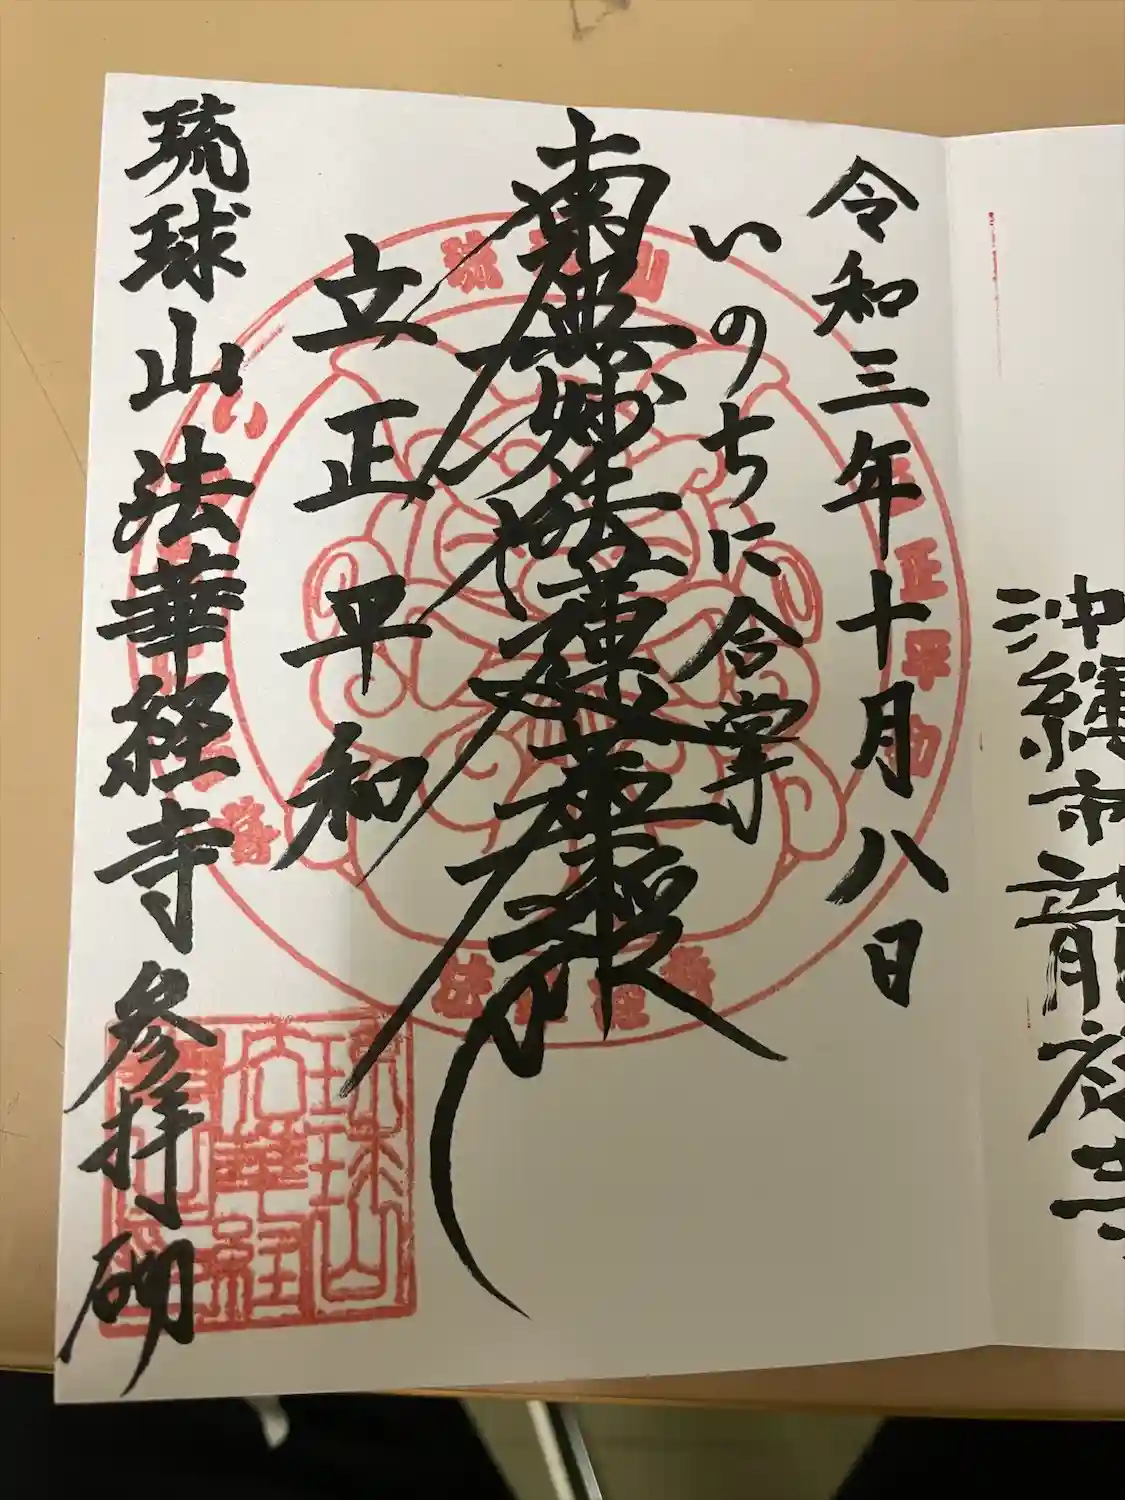 沖縄市龍福寺
令和三年十月八日
いのちに合掌
南無妙法蓮華経
立正平和
琉球山法華経寺
参拝
琉球山
法華経